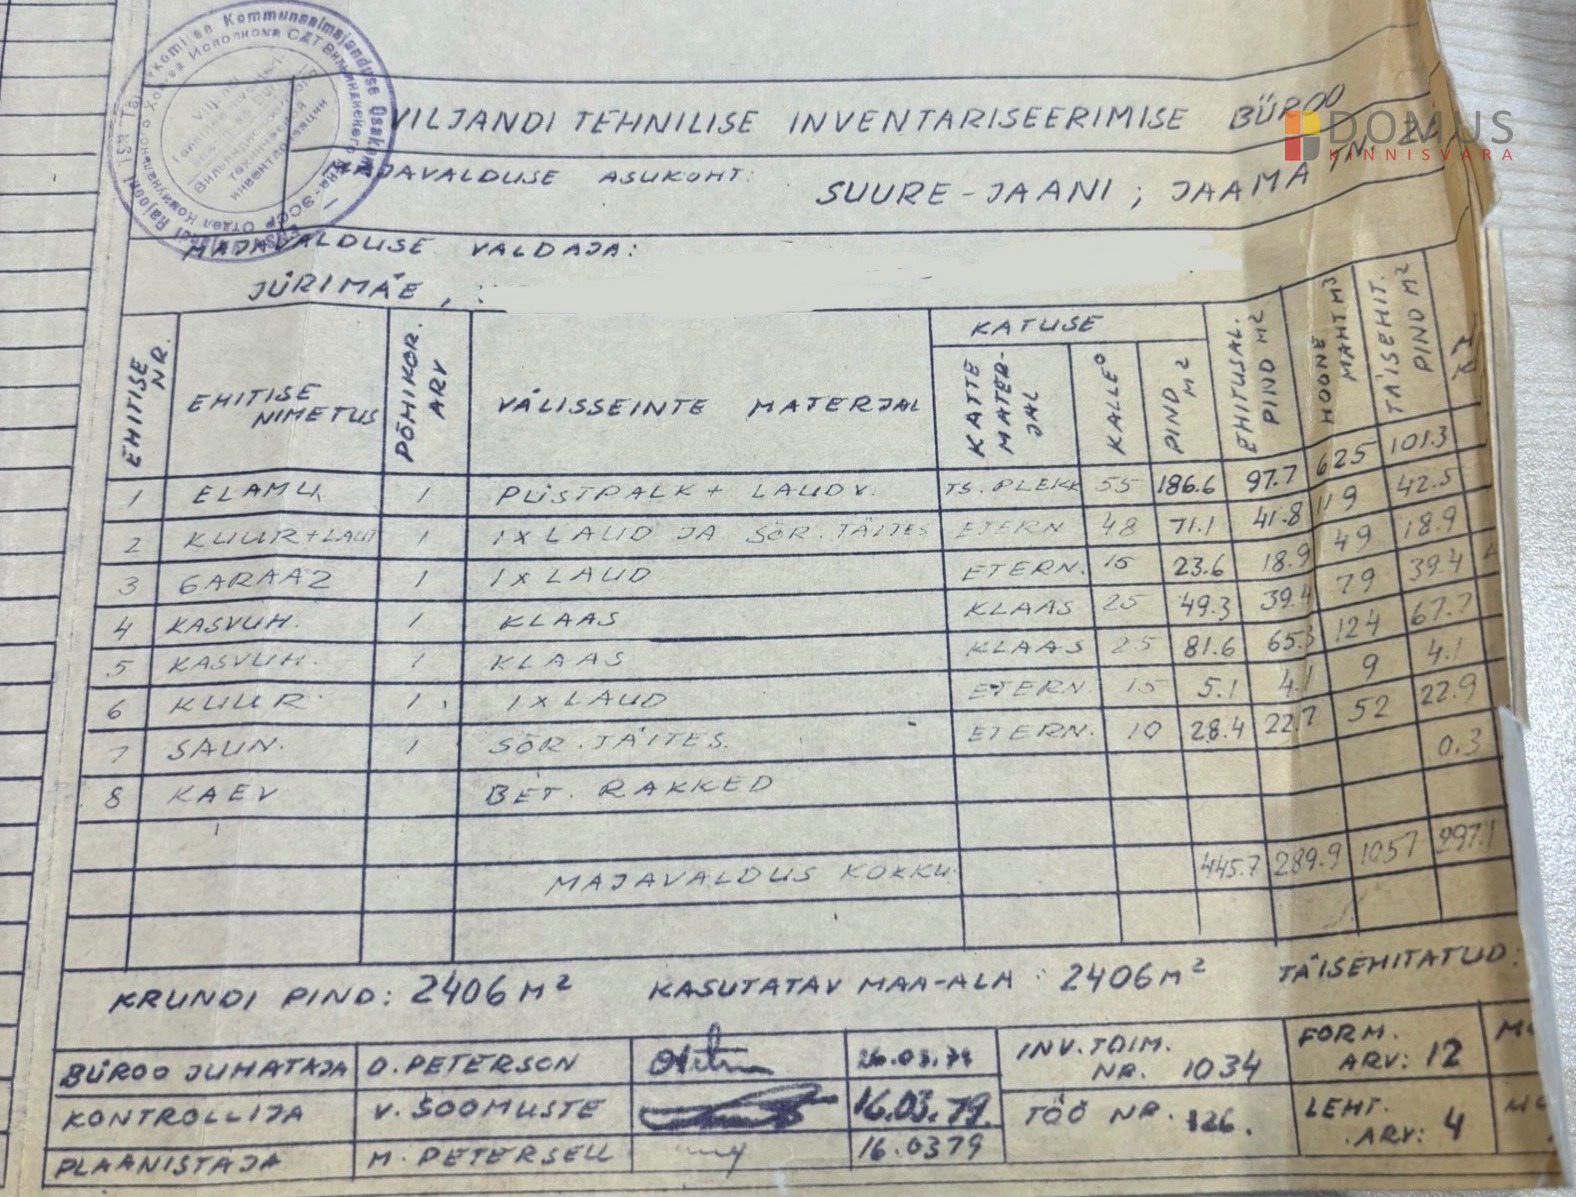 VILJANDI TEHNILISE INVENTARISEERIMISE BÜROO
DOMUS
KINNISVARA
MAJAVALDUSE ASUKOHT: SUURE-JAANI; JAAMA TN. 2
MAJAVALDUSE VALDAJA:
JÜRIMÄE,
EHITISE NR. EHITISE NIMETUS PÕHIKOR. ARV VÄLISSEINTE MATERJAL KATUSE KATTE MATER-JAL KALLE° PIND M2 EHITUSAL. PIND M2 HOONE MAHT M3 TÄISEHIT. PIND M2
1 ELAMU 1 PÜSTPALK + LAUDV. TS. PLEKK 55 186.6 97.7 625 101.3
2 KUUR+LAUT 1 1X LAUD JA SÕR. TÄITES ETERN 48 71.1 41.8 119 42.5
3 GARAAZ 1 1X LAUD ETERN. 15 23.6 18.9 49 18.9
4 KASVUH. 1 KLAAS KLAAS 25 49.3 39.4 79 39.4
5 KASVUH. 1 KLAAS KLAAS 25 81.6 65.3 124 67.7
6 KUUR 1 1X LAUD ETERN. 15 5.1 4.1 9 4.1
7 SAUN. 1 SÕR. TÄITES. ETERN. 10 28.4 22.7 52 22.9
8 KAEV BET. RAKKED 0.3
MAJAVALDUS KOKKU 445.7 289.9 1057 297.1
KRUNDI PIND: 2406 M2 KASUTATAV MAA-ALA: 2406 M2 TÄISEHITATUD:
BÜROO JUHATAJA O. PETERSON 26.03.79 INV. TOIM. NR. 1034 FORM. ARV: 12
KONTROLLIJA V. SOOMUSTE 16.03.79. TÖÖ NR. 126. LEHT. ARV: 4
PLAANISTAJA M. PETERSELL 16.0379